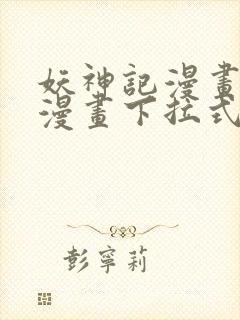 妖神記漫畫
漫畫下拉式
彭寧莉